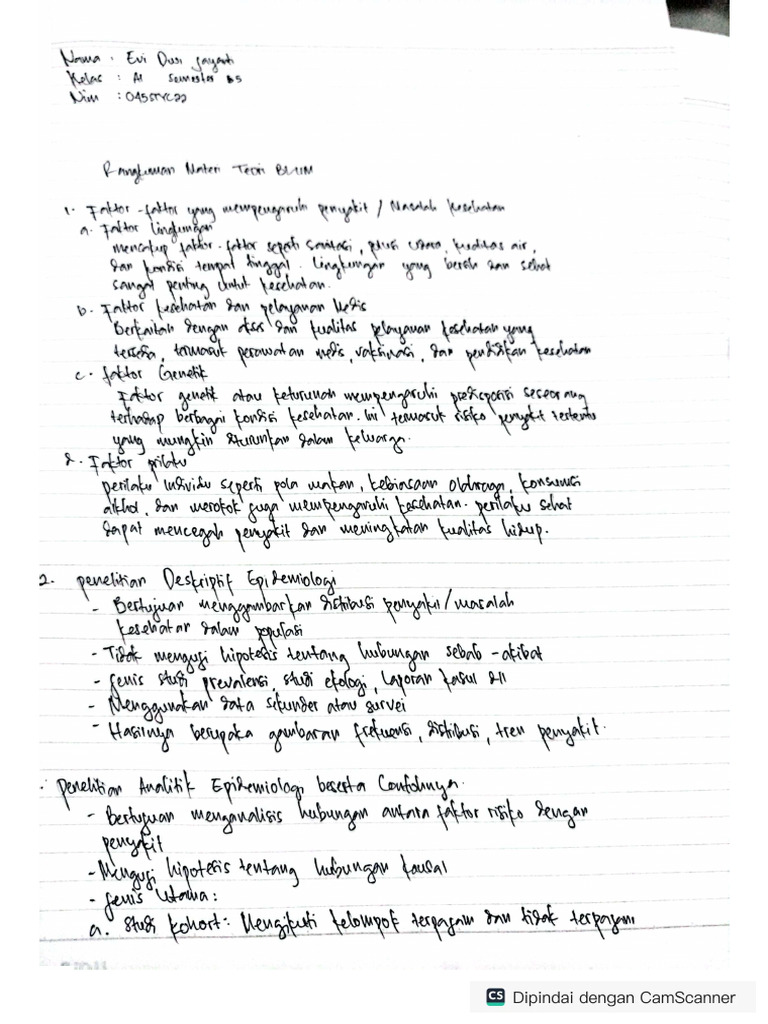 Nama : Evi Dwi Jayanti
Kelas : A1 Semester 5
Nim : 045STYC22
Rangkuman Materi Teori BLUM
1. Faktor-faktor yang mempengaruhi penyakit / Masalah kesehatan
a. Faktor lingkungan
mencakup faktor-faktor seperti sanitasi, polusi udara, kualitas air,
dan kondisi tempat tinggal. Lingkungan yang bersih dan sehat
sangat penting untuk kesehatan.
b. Faktor kesehatan dan pelayanan Medis
Berkaitan dengan akses dan kualitas pelayanan kesehatan yang
tersedia, termasuk perawatan medis, vaksinasi, dan pendidikan kesehatan
c. faktor Genetik
Faktor genetik atau keturunan mempengaruhi predisposisi seseorang
terhadap berbagai kondisi kesehatan. Ini termasuk risiko penyakit tertentu
yang mungkin diturunkan dalam keluarga.
d. Faktor prilaku
perilaku Individu seperti pola makan, kebiasaan olahraga, konsumsi
alkhol, dan merokok juga mempengaruhi kesehatan. perilaku sehat
dapat mencegah penyakit dan meningkatkan kualitas hidup.
2. penelitian Deskriptif Epidemiologi
- Bertujuan menggambarkan distribusi penyakit/masalah
kesehatan dalam populasi
- Tidak menguji hipotesis tentang hubungan sebab-akibat
- Jenis studi prevalensi, studi ekologi, Laporan kasus dll
- Menggunakan data sekunder atau survei
- Hasilnya berupaka gambaran frekuensi, distribusi, tren penyakit.
penelitian Analitik Epidemiologi beserta Contohnya.
- Bertujuan menganalisis hubungan antara faktor risiko dengan
penyakit
- Menguji hipotesis tentang hubungan kausal
- Jenis Utama:
a. Studi kohort: Mengikuti kelompok terpajam dan tidak terpajam
CS Dipindai dengan CamScanner